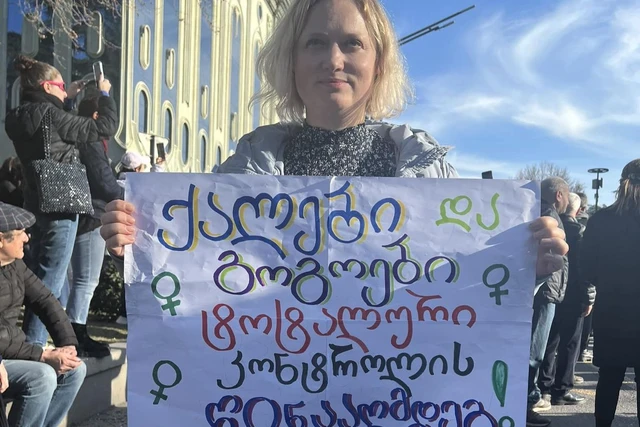 ქალები და
გოგოები
ტოტალური
კონტროლის
წინააღმდეგ